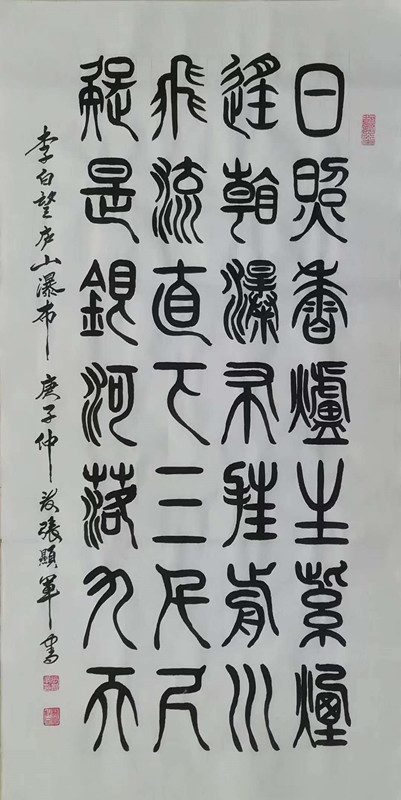 日照香爐生紫煙
遙看瀑布挂前川
飛流直下三千尺
疑是銀河落九天
李白望庐山瀑布 庚子仲 張顯軍書